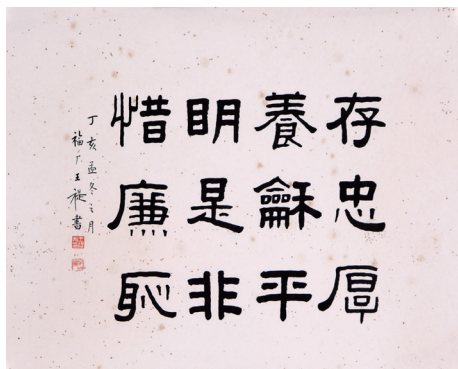 存忠厚
養龢平
明是非
惜廉恥
丁亥孟冬之月
福厂王禔書